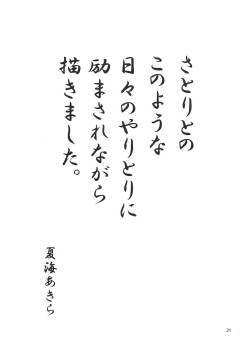 さとりとの
このような
日々のやりとりに
励まされながら
描きました。
夏海あきら
21